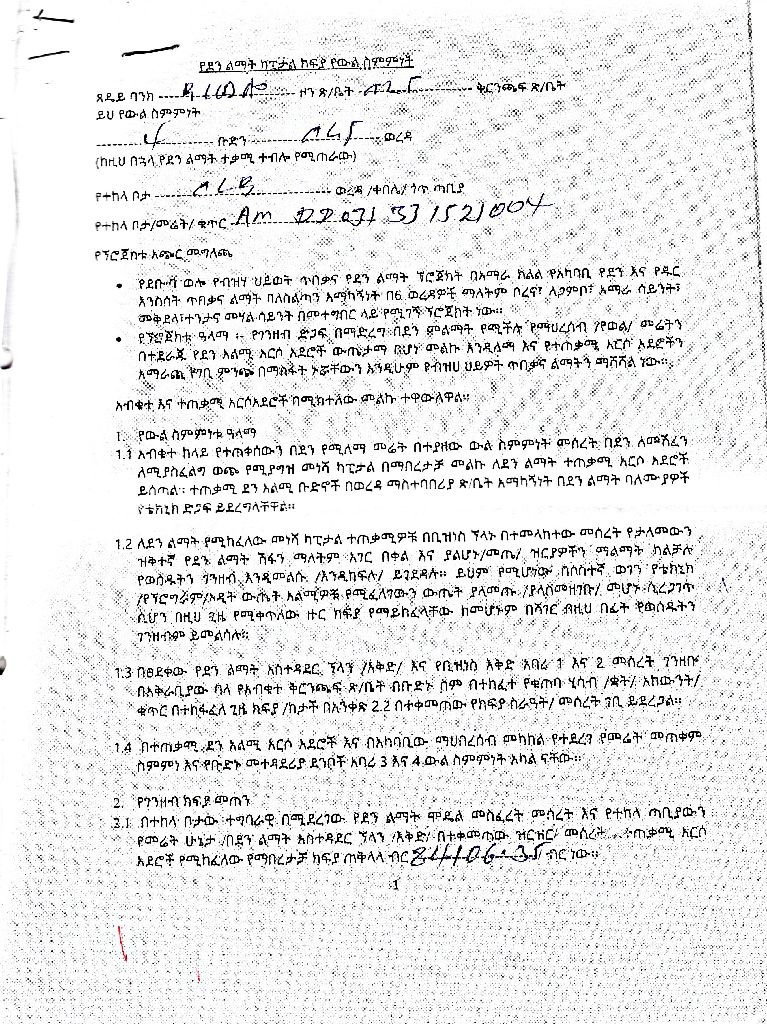 የደን ልማት ካፒታል ክፍያ የውል ስምምነት
ጸደይ ባንክ ዞን ጽ/ቤት ቅርንጫፍ ጽ/ቤት
ይህ የውል ስምምነት
4 ቡድን ወረዳ
(ከዚህ በኋላ የደን ልማት ተቃሚ ተብሎ የሚጠራው)
የተከላ ቦታ ወረዳ /ቀበሌ/ ጎጥ ጣቢያ
የተከላ ቦታ/መሬት/ ቁጥር AM DD 031 33 1521004
የፕሮጀክቱ አጭር መግለጫ
• የደቡብ ወሎ የብዝሃ ህይወት ጥበቃና የደን ልማት ፕሮጀክት በአማራ ክልል የአካባቢ የደን እና የዱር
እንስሳት ጥበቃና ልማት ባለስልጣን አማካኝነት በ6 ወረዳዎች ማለትም ቦረና፣ ለጋምቦ፣ አማራ ሳይንት፣
መቅደላ፣ተንታና መሃል ሳይንት በመተግበር ላይ የሚገኝ ፕሮጀክት ነው።
• የፕሮጀክቱ ዓላማ ፡- የገንዘብ ድጋፍ በማድረግ በደን ምልማት የሚችሉ የማህረሰብ /የወል/ መሬትን
በተደራጁ የደን አልሚ አርሶ አደሮች ውጤታማ በሆነ መልኩ እንዲለማ እና የተጠቃሚ አርሶ አደሮችን
አማራጪ የገቢ ምንጭ በማስፋት ኑሯቸውን እንዲሁም የብዝሀ ህይዎት ጥበቃና ልማትን ማሻሻል ነው።
አብቁተ እና ተጠቃሚ አርሶአደሮች በሚከተለው ምልኩ ተዋውለዋል።
1. የውል ስምምነቱ ዓላማ
1.1 አብቁተ ከላይ የተጠቀሰውን በደን የሚለማ መሬት በተያዘው ውል ስምምነት መሰረት በደን ለመሸፈን
ለሚያስፈልግ ወጭ የሚያግዝ መነሻ ካፒታል በማበረታቻ መልኩ ለደን ልማት ተጠቃሚ አርሶ አደሮች
ይሰጣል። ተጠቃሚ ደን አልሚ ቡድኖች በወረዳ ማስተባበሪያ ጽ/ቤት አማካኝነት በደን ልማት ባለሙያዎች
የቴክኒክ ድጋፍ ይደረግላቸዋል።
1.2 ለደን ልማት የሚከፈለው መነሻ ካፒታል ተጠቃሚዎቹ በቢዝነስ ፕላኑ በተመላከተው መሰረት የታለመውን
ዝቅተኛ የደን ልማት ሽፋን ማለትም አገር በቀል እና ያልሆኑ/መጤ/ ዝርያዎችን ማልማት ካልቻሉ
የወሰዱትን ገንዘብ እንዲመልሱ /እንዲከፍሉ/ ይገደዳሉ። ይህም የሚሆነው በሶስተኛ ወገን የቴክኒክ
/የፕሮግራም/ኦዲት ውጤት አልሚዎቹ የሚፈለገውን ውጤት ያላመጡ /ያላስመዘገቡ/ መሆኑ ሲረጋገጥ
ሲሆን በዚህ ጊዜ የሚቀጥለው ዙር ክፍያ የማይከፈላቸው ከመሆኑም በሻገር ከዚህ በፊት የወሰዱትን
ገንዘብም ይመልሳሉ።
1.3 በፀደቀው የደን ልማት አስተዳደር ፕላን /እቅድ/ እና የቢዝነስ እቅድ አባሪ 1 እና 2 መሰረት ገንዘቡ
በአቅራቢያው ባለ የአብቁተ ቅርንጫፍ ጽ/ቤት በቡድኑ ስም በተከፈተ የቁጠባ ሂሳብ /ቋት/ አካውንት/
ቁጥር በተከፋፈለ ጊዜ ክፍያ /ከታች በአንቀጽ 2.2 በተቀመጠው የክፍያ ስራዓት/ መሰረት ገቢ ይደረጋል።
1.4 በተጠቃሚ ደን አልሚ አርሶ አደሮች እና በአካባቢው ማህበረሰብ መካከል የተደረገ የመሬት መጠቀም
ስምምነ እና የቡድኑ መተዳደሪያ ደንቦች አባሪ 3 እና 4 ውል ስምምነት አካል ናቸው።
2. የገንዘብ ክፍያ መጠን
2.1 በተከላ ቦታው ተግባራዊ በሚደረገው የደን ልማት ሞዴል መስፈረት መሰረት እና የተከላ ጣቢያውን
የመሬት ሁኔታ /በደን ልማት አስተዳደር ፕላን /እቅድ/ በተቀመጠው ዝርዝር/ መሰረት ተጠቃሚ አርሶ
አደሮች የሚከፈለው የማበረታቻ ክፍያ ጠቅላላ ብር 84106.35 ብር ነው።
1